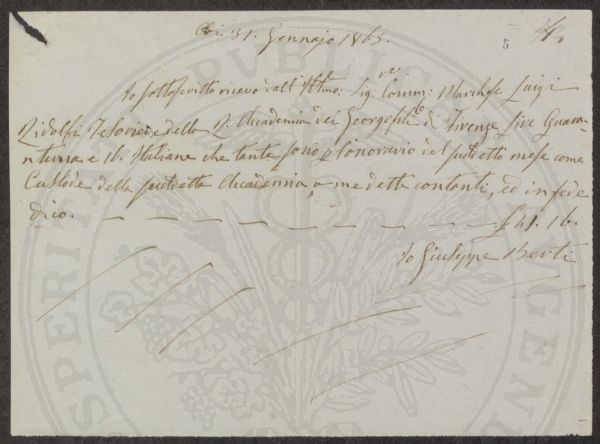 Di 31. Gennajo 1865.
5
Io sottoscritto ricevo dall' Illmo: Sig.re Comm: Marchese Luigi
Ridolfi Tesoriere della R. Accademia dei Georgofili di Firenze Lire Quaran-
tuna e 16. Italiane che tante sono p l'onorario del sudetto mese come
Custode della sudetta Accademia a me dette contanti, ed in fede
dico. — — — — — — — — — £ 41. 16.
Io Giuseppe Berti
PROSPERITATI PUBLICAE AUGENDAE